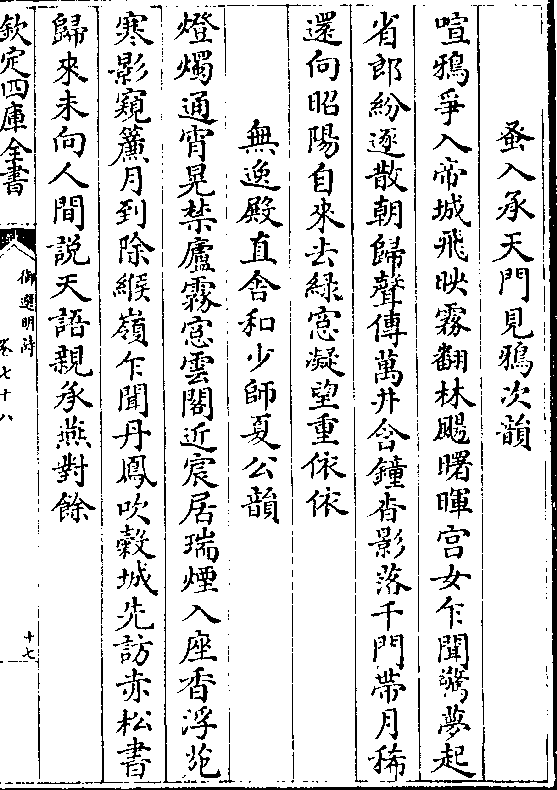 蚤入承天門見鴉次韻
喧鴉爭入帝城飛映霧翻林颺曙暉宮女乍聞驚夢起
省郎紛逐散朝歸聲傳萬井含鐘杳影落千門帶月稀
還向昭陽自來去綠窓凝望重依依
無逸殿直舍和少師夏公韻
燈燭通宵晃禁廬霧窓雲閣近宸居瑞煙入座香浮苑
寒影窺簾月到除緱嶺乍聞丹鳳吹穀城先訪赤松書
歸來未向人間説天語親承燕對餘
欽定四庫全書
御選明詩
卷七十八
十七